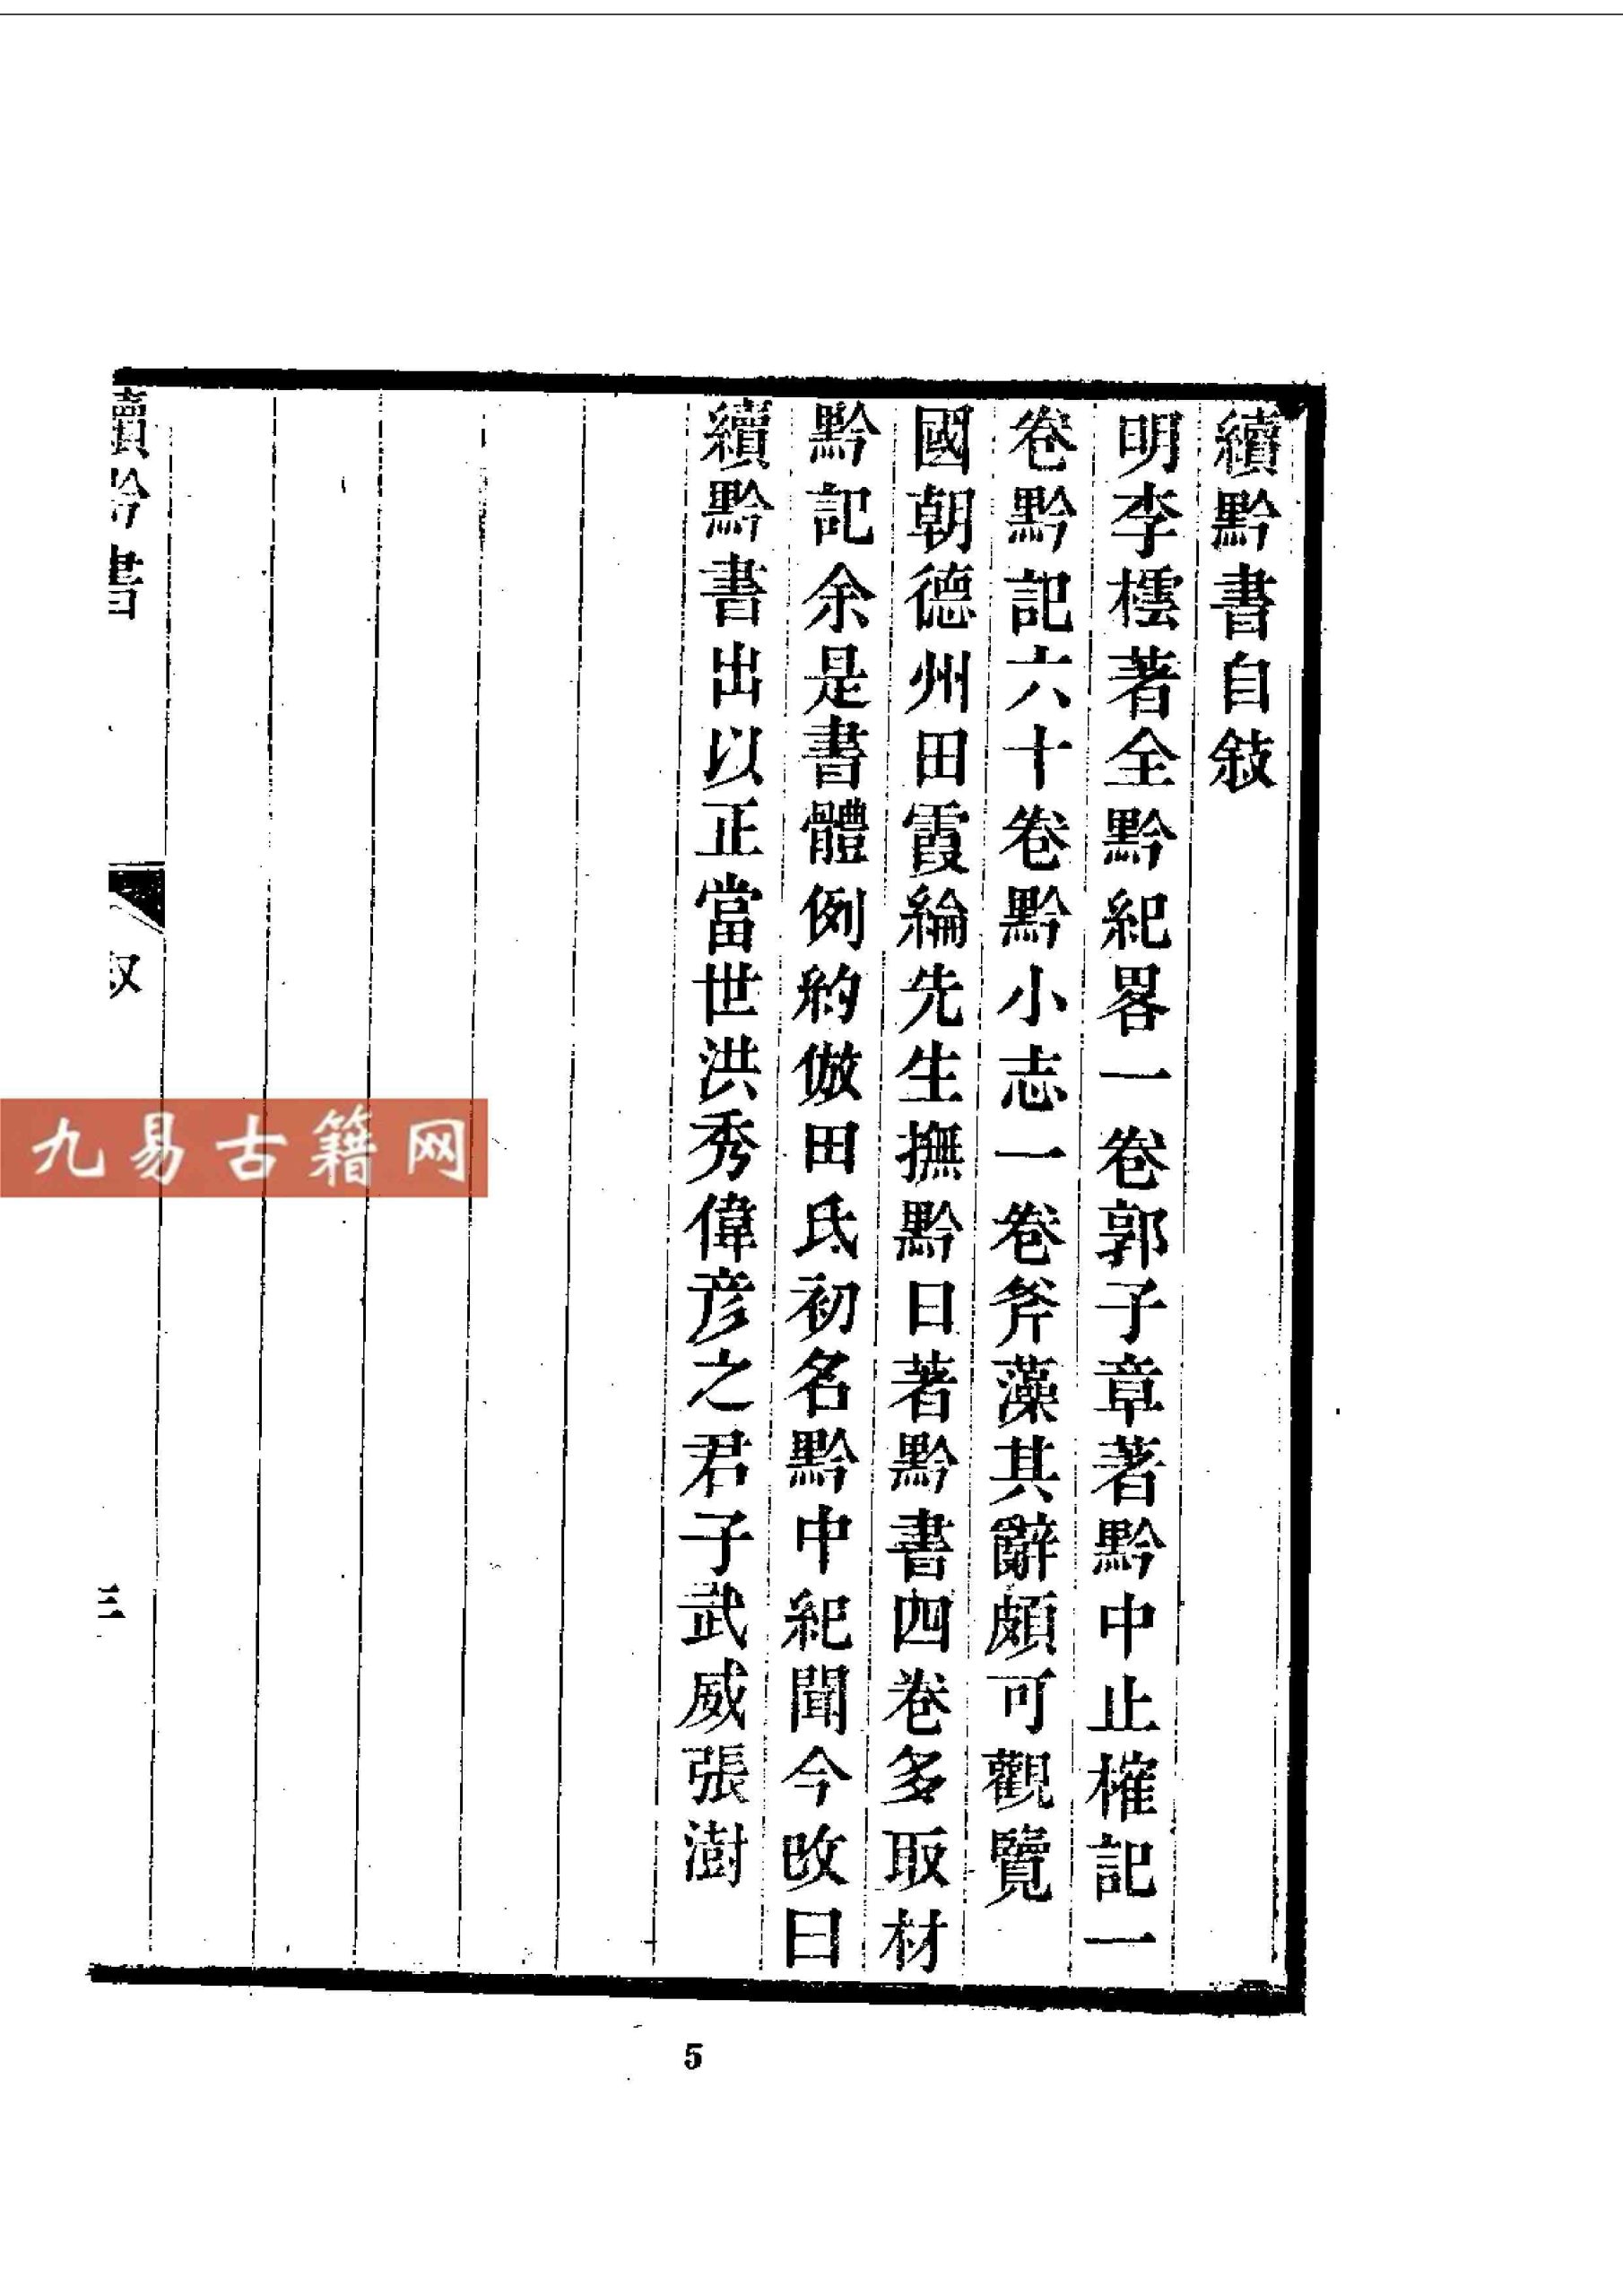 續黔書自敍
明李橒著全黔紀畧一卷郭子章著黔中止榷記一
卷黔記六十卷黔小志一卷斧藻其辭頗可觀覽
國朝德州田霞綸先生撫黔日著黔書四卷多取材
黔記余是書體例約倣田氏初名黔中紀聞今改曰
續黔書出以正當世洪秀偉彦之君子武威張澍
續黔書
叙
三
九易古籍网
5